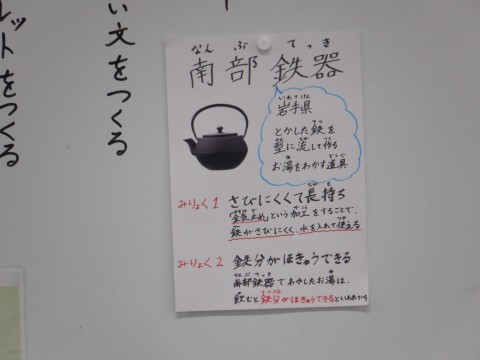 い文をつくる
レットをつくる
なんぶてっき
南部鉄器
いわてけん
岩手県
とかした鉄を
型に流して作る
お湯をわかす道具
みりょく1 さびにくくて長持ち
という加工をすることで、
鉄がさびにくく、水を入れて使える
みりょく2 鉄分がほきゅうできる
南部鉄器でわかしたお湯は、
飲むと鉄分がほきゅうできるといわれている